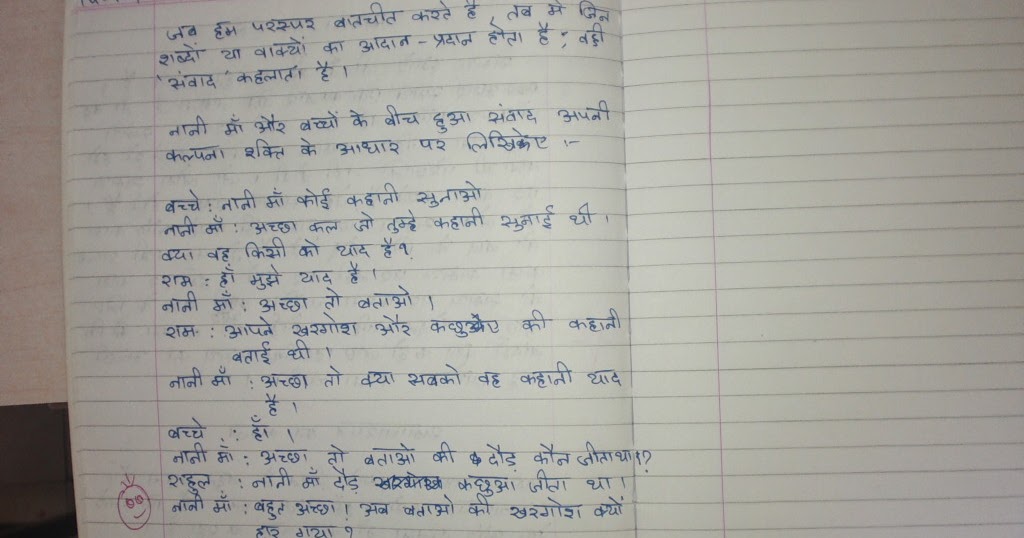 जब हम परस्पर बातचीत करते है तब मे जिन
शब्दों या वाक्यों का आदान - प्रदान होता है ; वही
'संवाद' कहलाता है ।
नानी माँ और बच्चों के बीच हुआ संवाद अपनी
कल्पना शक्ति के आधार पर लिखिए :-
बच्चे : नानी माँ कोई कहानी सुनाओ
नानी माँ : अच्छा कल जो तुम्हे कहानी सुनाई थी ।
क्या वह किसी को याद है ?
राम : हाँ मुझे याद है ।
नानी माँ : अच्छा तो बताओ ।
राम : आपने खरगोश और कछुए की कहानी
बताई थी ।
नानी माँ : अच्छा तो क्या सबको वह कहानी याद
है ।
बच्चे : हाँ ।
नानी माँ : अच्छा तो बताओ की दौड़ कौन जीता था ?
राहुल : नानी माँ दौड़ कछुआ जीता था ।
नानी माँ : बहुत अच्छा ! अब बताओ की खरगोश क्यों
हार गया ?